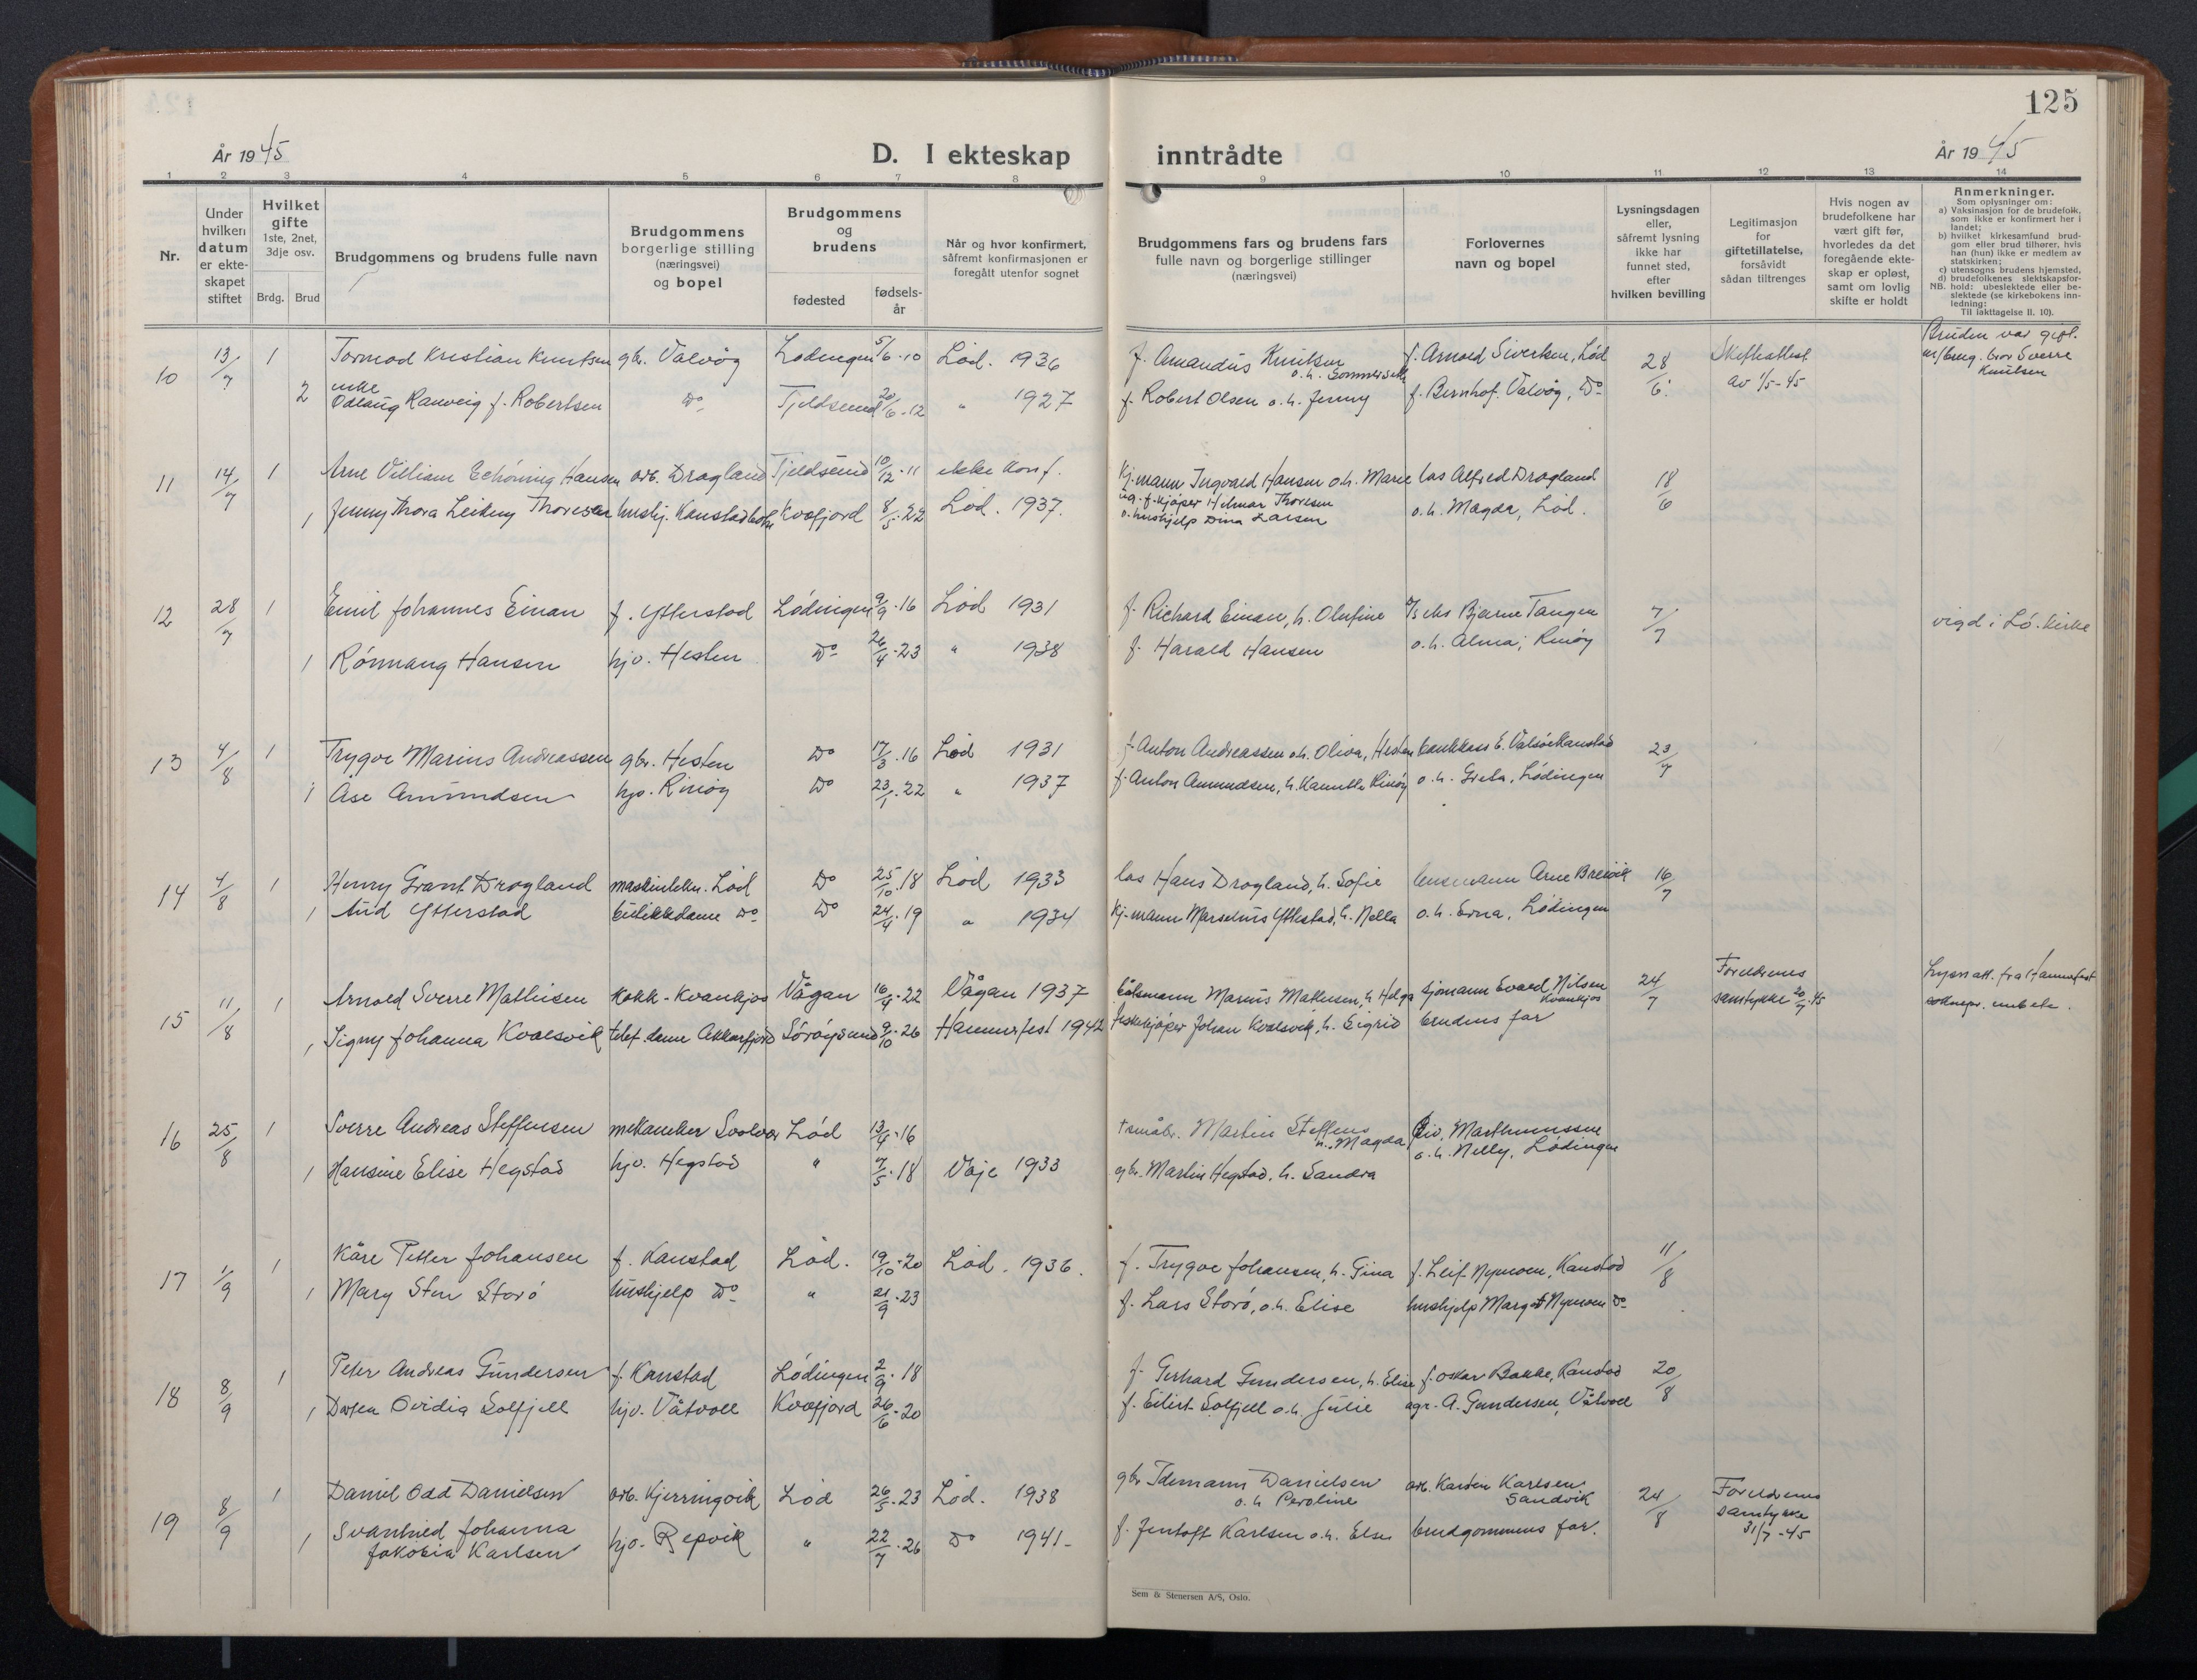 125
År 1945
D. I ekteskap inntrådte
År 1945
1 2 3 4 5 6 7 8 9 10 11 12 13 14
Nr.
Under hvilken datum er ekteskapet stiftet
Hvilket gifte 1ste, 2net, 3dje osv.
Brdg. Brud
Brudgommens og brudens fulle navn
Brudgommens borgerlige stilling (næringsvei) og bopel
Brudgommens og brudens
fødested
fødselsår
Når og hvor konfirmert, såfremt konfirmasjonen er foregått utenfor sognet
Brudgommens fars og brudens fars fulle navn og borgerlige stillinger (næringsvei)
Forlovernes navn og bopel
Lysningsdagen eller, såfremt lysning ikke har funnet sted, efter hvilken bevilling
Legitimasjon for giftetillatelse, forsåvidt sådan tiltrenges
Hvis nogen av brudefolkene har vært gift før, hvorledes da det foregående ekteskap er opløst, samt om lovlig skifte er holdt
Anmerkninger.
Som oplysninger om:
a) Vaksinasjon for de brudefolk, som ikke er konfirmert her i landet;
b) hvilket kirkesamfund brudgom eller brud tilhører, hvis han (hun) ikke er medlem av statskirken;
c) utensogns brudens hjemsted,
d) brudefolkenes slektskapsforhold: ubeslektede eller beslektede (se kirkebokens innledning:
NB.
Til iakttagelse II. 10).
10 13/7 1 Tormod Kristian Knutsen gbr. Valvåg Lødingen 5/6-10 Lød. 1936 f. Amandus Knutsen o.h. Sommerseth f. Arnold Sivertsen, Lød 28/6 Skifteattest av 1/5-45 Bruden var gift m/brug. bror Sverre Knutsen
2 enke Odlaug Ranveig f. Robertsen Do Tjeldsund 20/6-12 " 1927 f. Robert Olsen o.h. Jenny f. Bernhof. Valvåg, Do
11 14/7 1 Arne Villiam Schöning Hansen arb. Dragland Tjeldsund 10/12-11 ikke konf. Kj.mann Ingvald Hansen o.h. Marie los Alfred Dragland 18/6
1 Jenny Thora Leideng Thoresen hushj. Kanstadbotn Kvæfjord 8/5-22 Lød. 1937. ug. f.kjøper Hilmar Thoresen o. hushjelp Dina Larsen o.h. Magda, Lød.
12 28/7 1 Emil Johannes Einan f. Ytterstad Lødingen 9/9-16 Lød 1931 f. Richard Einan, h. Olufine Bjarne Tangen 7/7 vigd i Lø. kirke
1 Rønnaug Hansen hjv. Hesten Do 26/4-23 " 1938 f. Harald Hansen o.h. Alma, Rinøy
13 4/8 1 Trygve Marius Andreassen gbr. Hesten Do 17/3-16 Lød 1931 f. Anton Andreassen o.h. Oliva, Hesten bankkass E. Valsøe Kanstad 23/7
1 Åse Amundsen hjv. Rinøy Do 23/1-22 " 1937 f. Anton Amundsen, h. Kamilla Rinøy o.h. Greta, Lødingen
14 4/8 1 Henny Grant Dragland maskintekn. Lød Do 25/10-18 Lød 1933 los Hans Dragland, h. Sofie lensmann Arne Breivik 16/7
1 Aud Ytterstad butikkdame Do Do 24/4-19 " 1934 Kj.mann Marselius Ytterstad, h. Nella o.h. Erna, Lødingen
15 11/8 1 Arnold Sverre Mathisen kokk-Kvankjos Vågan 16/4-22 Vågan 1937 båtsmann Marius Mathisen, h. Helga sjømann Evald Nilsen Kvankjos 24/7 Foreldrenes samtykke 20/7-45 Lysn att. fra Hammerfest soknepr. embete.
1 Signy Johanna Kvalsvik telef. dame Akkarfjord Sørøysund 9/10-26 Hammerfest 1942 fiskekjøper Johan Kvalsvik, h. Sigrid brudens far
16 25/8 1 Sverre Andreas Steffensen mekaniker Svolvær Lød 13/4-16 † småbr. Martin Steffens h. Magda Marthinussen
1 Hansine Elise Hegstad hjv. Hegstad " 7/5-18 Våje 1933 gbr. Martin Hegstad, h. Sandra o.h. Nelly, Lødingen
17 1/9 1 Kåre Petter Johansen f. Kanstad Lød. 19/10-20 Lød. 1936. f. Trygve Johansen, h. Gina f. Leif Nymoen, Kanstad 11/8
1 Mary Sten Storø hushjelp Do " 21/9-23 f. Lars Storø, o.h. Elise hushjelp Margot Nymoen Do
18 8/9 1 Peter Andreas Gundersen f. Kanstad Lødingen 2/9-18 f. Gerhard Gundersen, h. Elise f. Oskar Bakke, Kanstad 20/8
1 Ovidia Solfjell hjv. Våtvoll Kvæfjord 26/6-20 f. Eilert Solfjell o.h. Julie agr. A. Gundersen, Våtvoll
19 8/9 1 Daniel Odd Danielsen arb. Kjerringvik Lød 26/5-23 Lød. 1938 gbr Idemann Danielsen o.h Peroline arb. Karsten Karlsen Sandvik 24/8 Foreldrenes samtykke 31/7-45
1 Svanhild Johanna Jakobia Karlsen hjv. Repvik " 22/7-26 Do 1941- f. Jentoft Karlsen o.h. Else brudgommens far.
Sem & Stenersen A/S, Oslo.